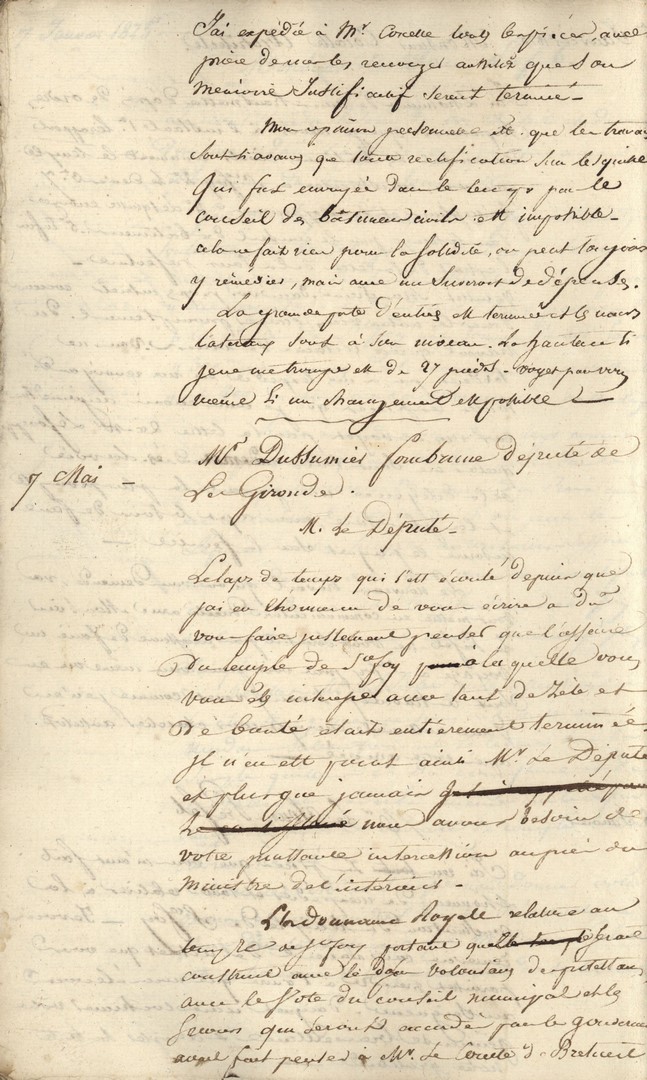 J'ai expédié à Mr. Corcelle toutes les pièces, avec
prière de nous les renvoyer aussitôt que son
mémoire Justificatif serait terminé -
Mon opinion personnelle est que les travaux
sont si avancés que toute rectification sur les
qui fut envoyée dans le tems par le
conseil des bâtimens civils est impossible -
cela ne fait rien pour la solidité, on peut toujours
y rémédier, mais avec un surcroit de dépenses.
La grande porte d'entrée est terminée et les murs
lateraux sont à son niveau. La hauteur si
je ne me trompe est de 27 pieds - voyez par vous
même si un changement est possible
7 Mai -
Mr. Dussumier Fombrune député de
La Gironde.
M. Le Député -
Le laps de temps qui s'est écoulé depuis que
j'ai eu l'honneur de vous écrire a du
vous faire justement penser que l'affaire
du temple de Ste foy à laquelle vous
vous interessé avec tant de zèle et
de bonté était entièrement terminée.
Il n'en est point ainsi Mr. Le Député
et plus que jamais
nous avons besoin de
votre puissante intercession auprès du
Ministre de l'intérieur -
L'ordonnance Royale relative au
temple de Ste foy portant
construit avec les dons volontaires des protestans
avec le vote du conseil municipal et les
secours qui seront accordés par le gouvernement
avait fait penser à Mr. Le Comte de Breteuil